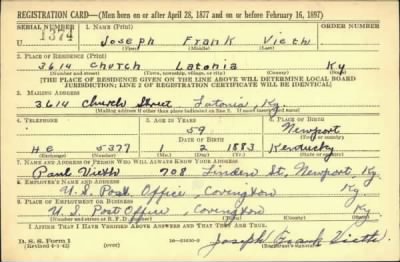 REGISTRATION CARD—(Men born on or after April 28, 1877 and on or before February 16, 1897)
SERIAL NUMBER 1. NAME (Print) ORDER NUMBER
U 1374 Joseph Frank Vieth
(First) (Middle) (Last)
2. PLACE OF RESIDENCE (Print)
3614 Church Latonia Ky
(Number and street) (Town, township, village, or city) (County) (State)
[THE PLACE OF RESIDENCE GIVEN ON THE LINE ABOVE WILL DETERMINE LOCAL BOARD
JURISDICTION; LINE 2 OF REGISTRATION CERTIFICATE WILL BE IDENTICAL]
3. MAILING ADDRESS
3614 Church Street Latonia Ky
[Mailing address if other than place indicated on line 2. If same insert word same]
4. TELEPHONE 5. AGE IN YEARS 6. PLACE OF BIRTH
59 Newport
DATE OF BIRTH (Town or county)
HE 5377 1 2 1883 Kentucky
(Exchange) (Number) (Mo.) (Day) (Yr.) (State or country)
7. NAME AND ADDRESS OF PERSON WHO WILL ALWAYS KNOW YOUR ADDRESS
Paul Vieth 708 Linden St, Newport, Ky.
8. EMPLOYER'S NAME AND ADDRESS
U.S. Post Office, Covington Ky
9. PLACE OF EMPLOYMENT OR BUSINESS
U.S. Post Office, Covington Ky
(Number and street or R. F. D. number) (Town) (County) (State)
I AFFIRM THAT I HAVE VERIFIED ABOVE ANSWERS AND THAT THEY ARE TRUE.
D. S. S. Form 1
(Revised 4-1-42) (over) Joseph Frank Vieth
(Registrant's signature)